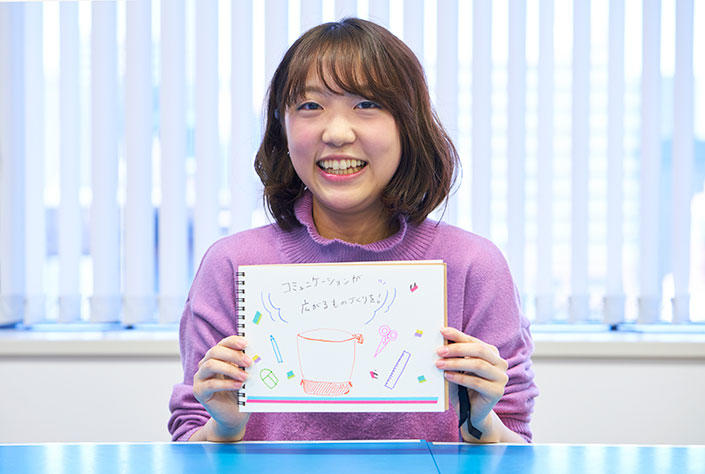 コミュニケーションが
広がるものづくりを！